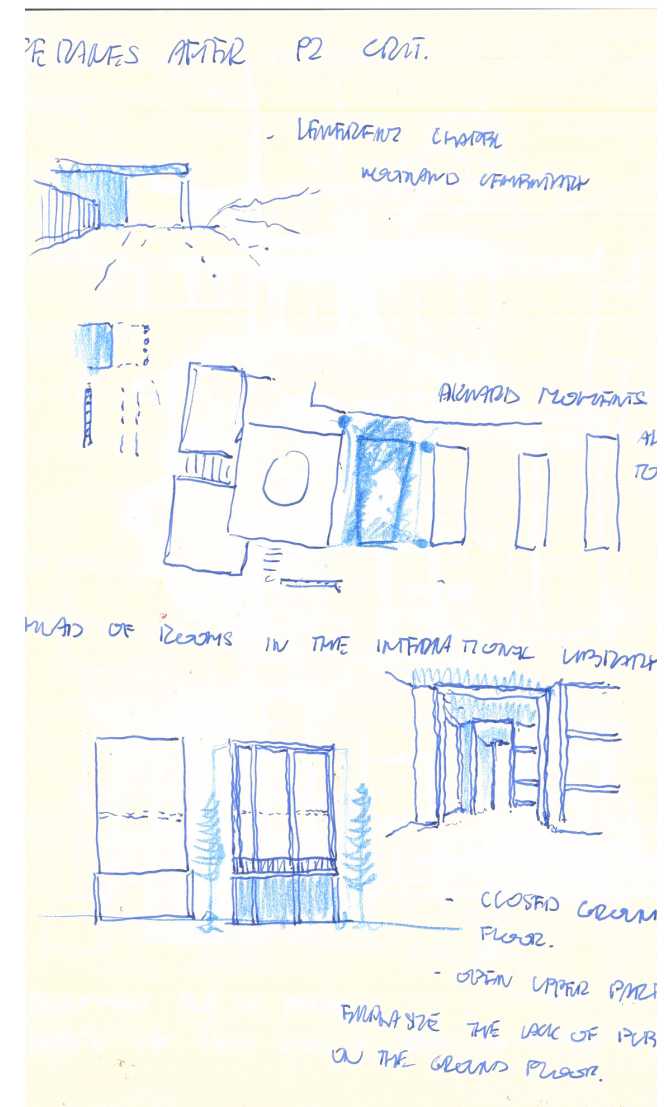 AFTER P2 CRIT.
- LEWERENTZ CHAPEL
WOODLAND CEMENTARY
AKWARD MOMENTS
OF ROOMS IN THE INTERNATIONAL LIBRARY
- CLOSED GROUN
FLOOR.
- OPEN UPPER PART
EMPHASIZE THE LACK OF PUB
ON THE GROUND FLOOR.